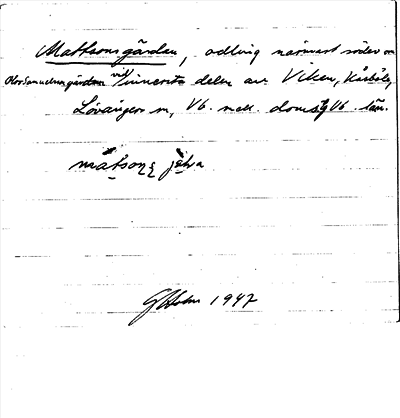 Mattsonsgården, odling närmast söder om
Olorsamuelsgården vid innersta delen av Viken, Kåsböle,
Lövångers sn, Vb. mell. doms. Vb. län.
måtson
G Holm 1947